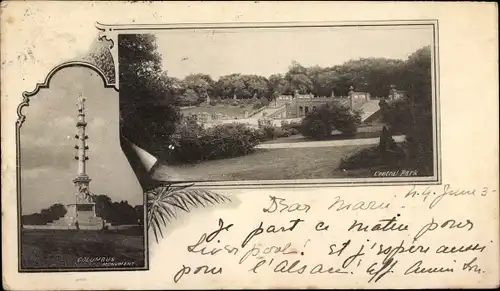 Central Park.
COLUMBUS
MONUMENT
Dear Marie. N.Y. June 3
Je part ce matin pour
Liverpool. et j'espère aussi
pour l'Alsace.